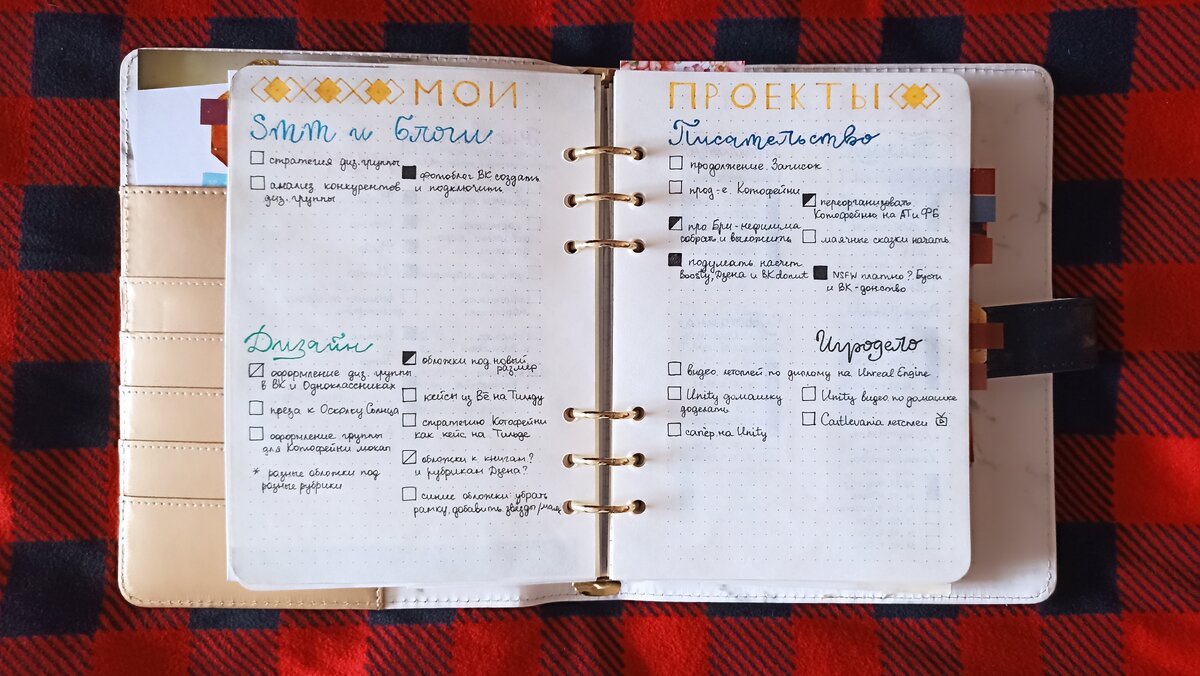 МОИ
Smm и блоги
стратегия диз. группы
анализ конкурентов
диз. группы
фотоблог ВК создать
и подключить
Дизайн
оформление диз. группы
в ВК и Одноклассниках
преза к Осколку Солнца
оформление группы
для Котофейни мокап
* разные обложки под
разные рубрики
обложки под новый
размер
кейсы из Бё на Тильду
стратегию Котофейни
как кейс на Тильде
обложки к книгам?
и рубрикам Дзена?
синие обложки: убрать
рамку, добавить звёзды/маяк
ПРОЕКТЫ
Писательство
продолжение Записок
прод-е Котофейни
про Бри-нефилима
собрать и выложить
подумать насчёт
boosty, Дзена и ВК donut
переорганизовать
Котофейню на АТ и ФБ
маячные сказки начать
NSFW платно? Бусти
и ВК-донство
Игродело
видео летсплей по диплому на Unreal Engine
Unity домашку
доделать
сапёр на Unity
Unity видео по домашке
Castlevania летсплей